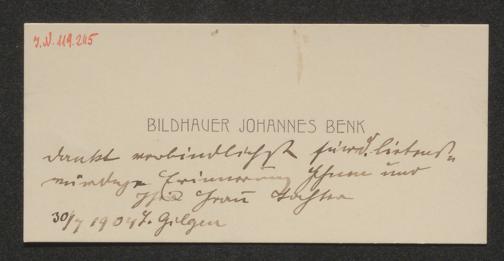 I.N. 119.215
BILDHAUER JOHANNES BENK
dankt verbindlichst für d. liebens-
würdige Erinnerung Ihnen und
Frau Tochter
30/7 1904 St. Gilgen